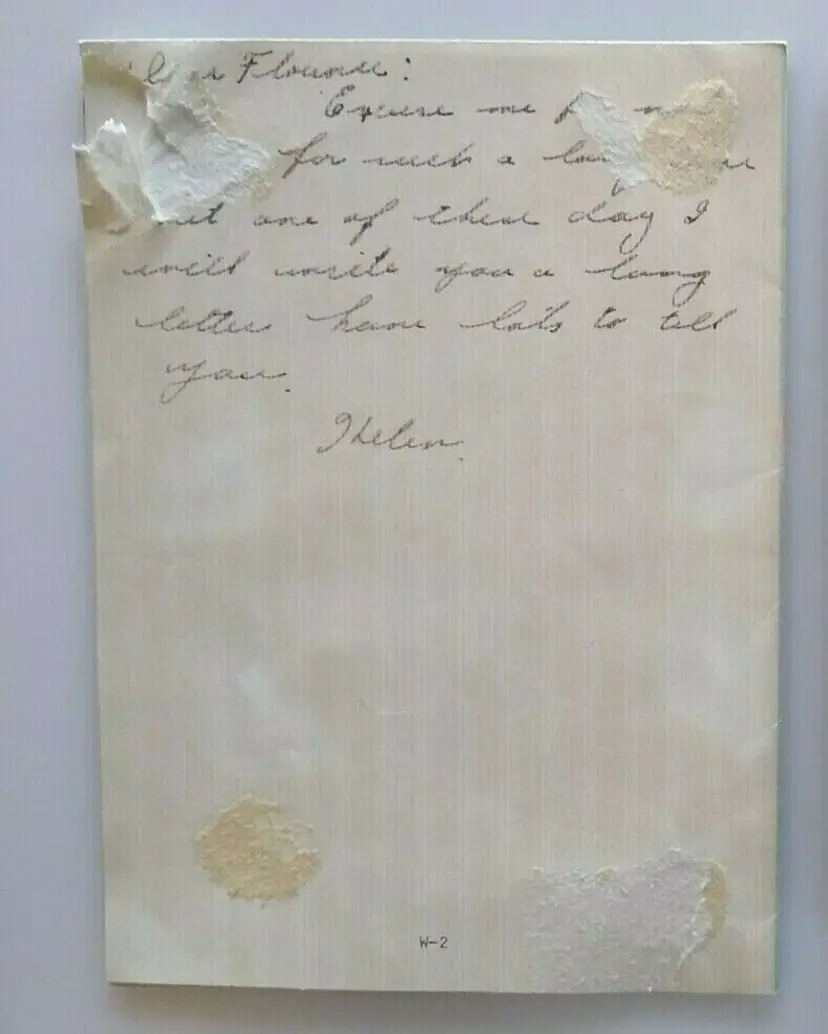 Florence:
Excuse me
for such a
but one of these day I
will write you a long
letter have lots to tell
you.
Helen.
W-2